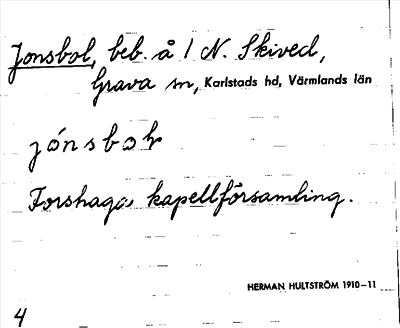 Jonsbol, beb. å 1 N. Skived,
Grava sn, Karlstads hd, Värmlands län
jónsbo
Forshaga kapellförsamling.
HERMAN HULTSTRÖM 1910–11
4